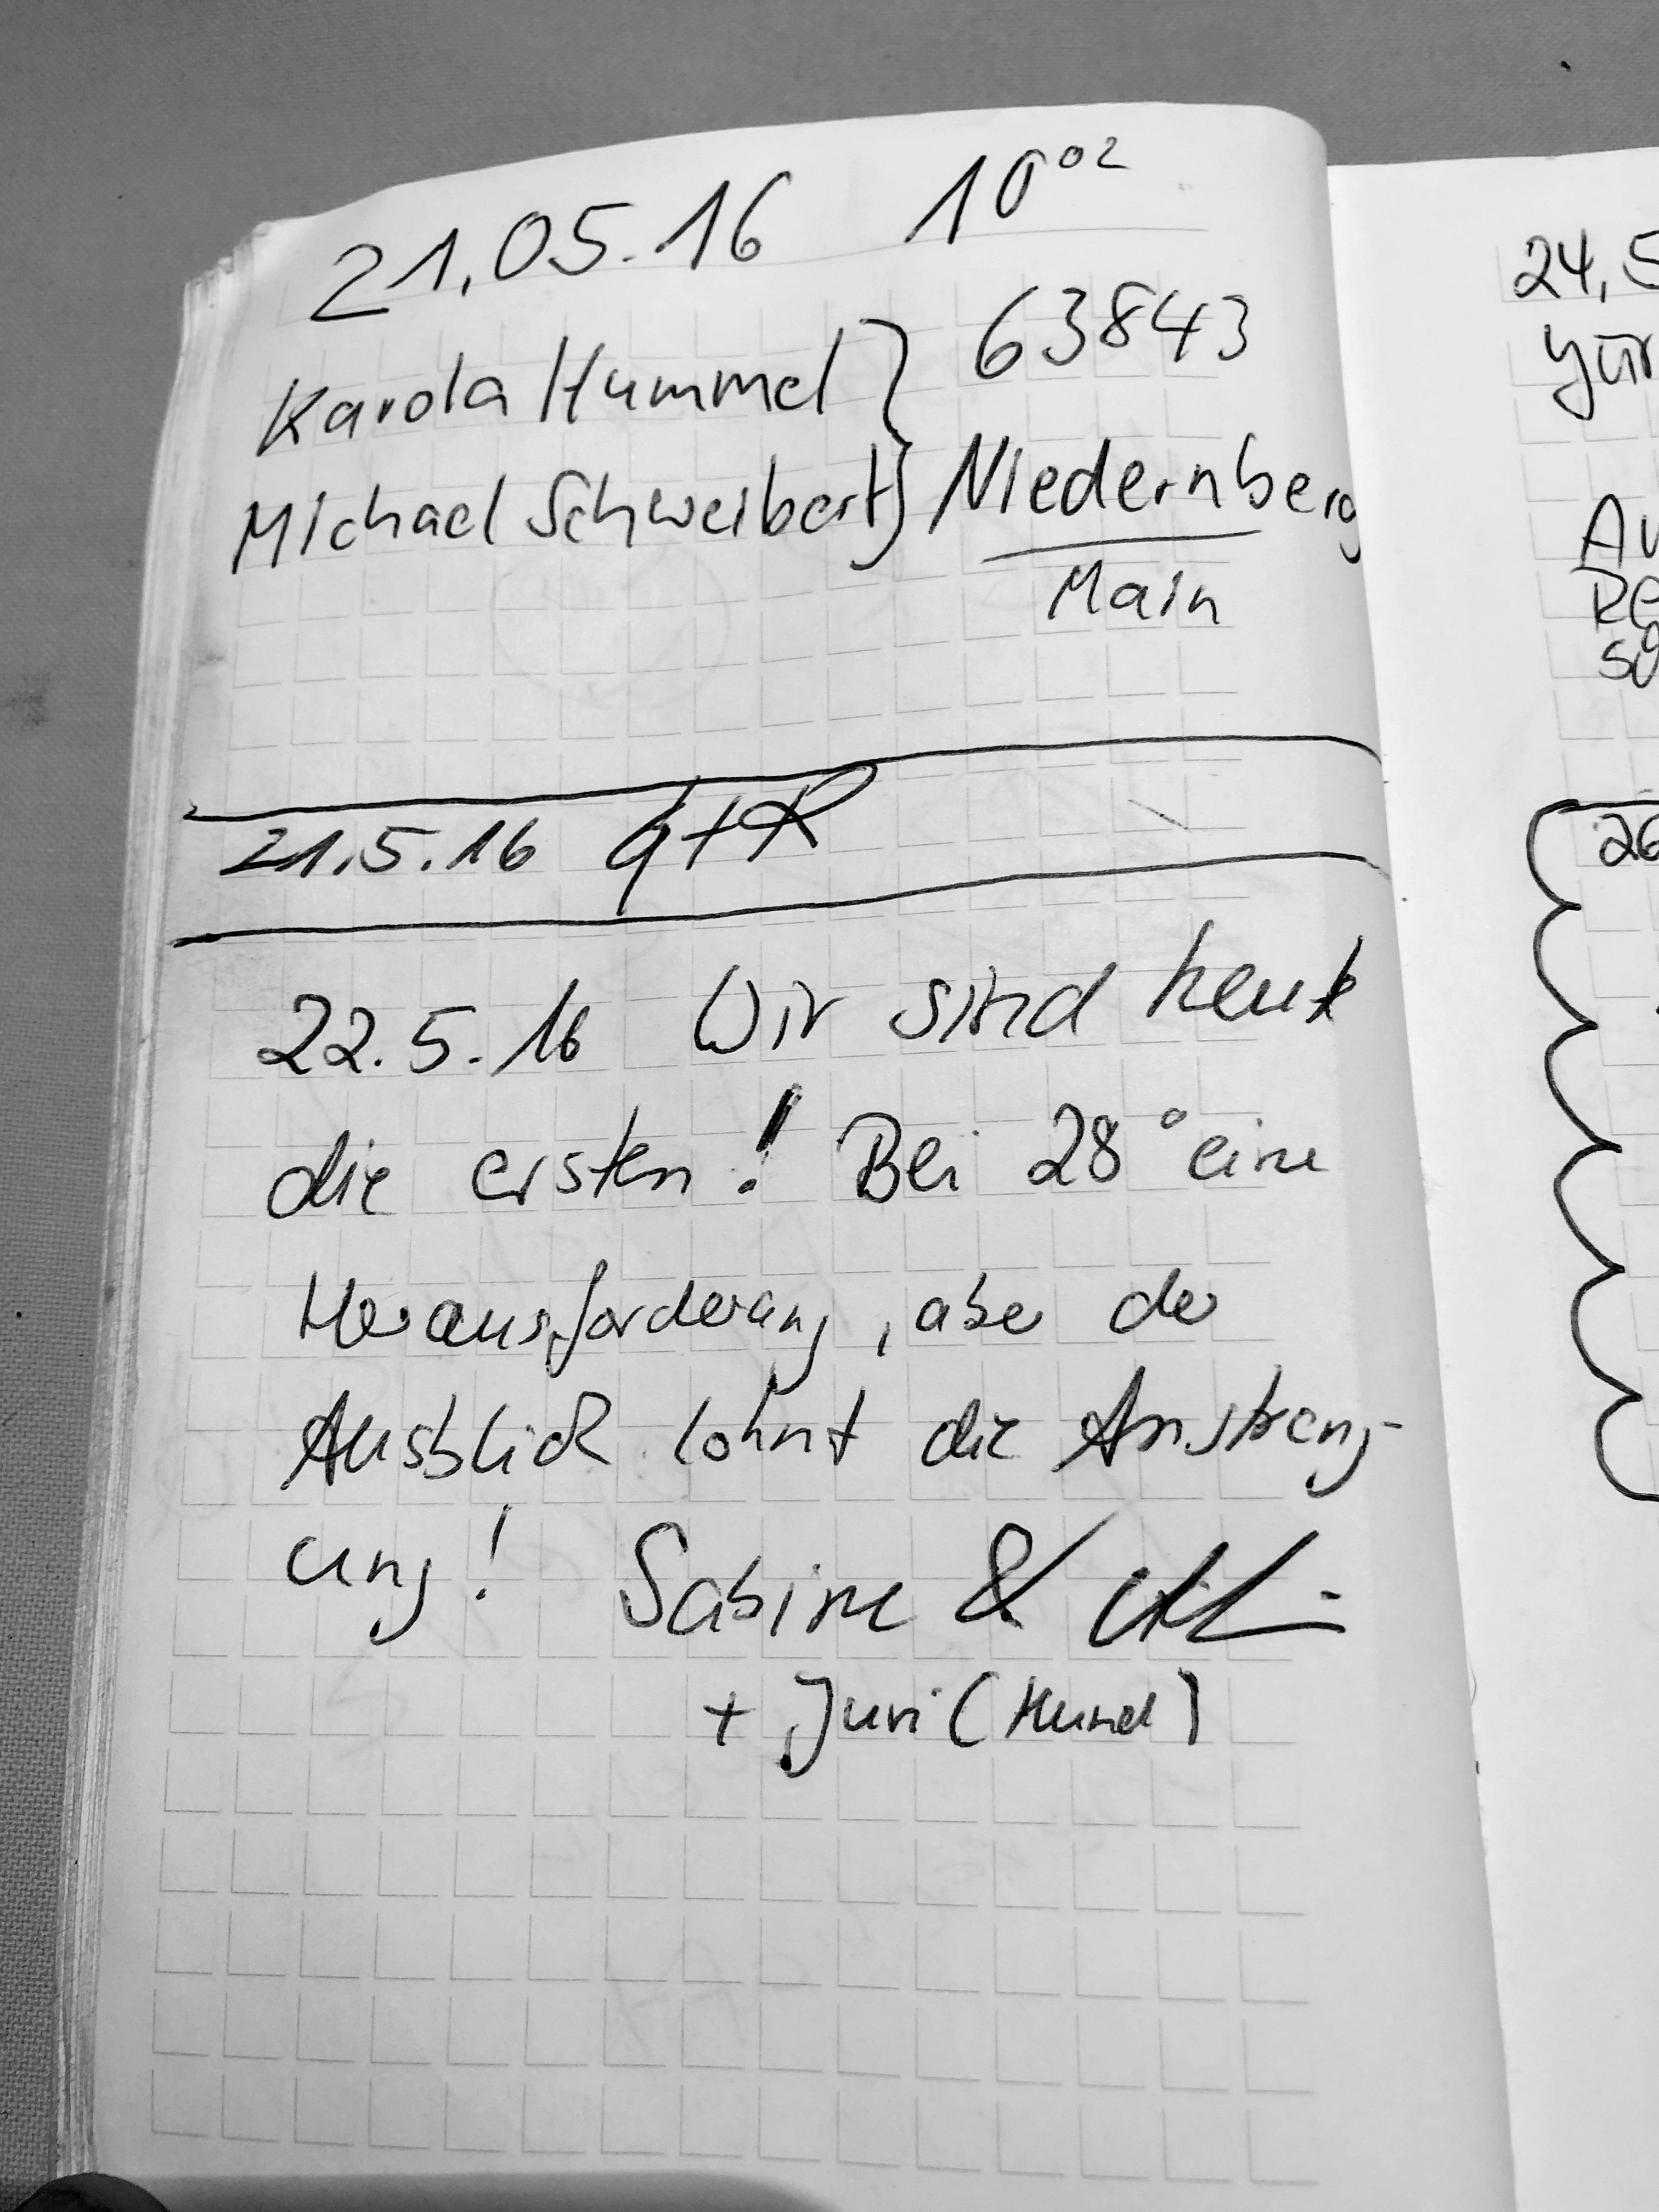 21.05.16 10⁰²
Karola Hummel } 63843
Michael Schweibert } Niedernberg
Main
21.5.16
22.5.16 Wir sind heute
die ersten! Bei 28° eine
Herausforderung, aber der
Ausblick lohnt die Anstreng-
ung! Sabine &
+ Juri (Hund)
24,5
Jür
Au
Re
so
26